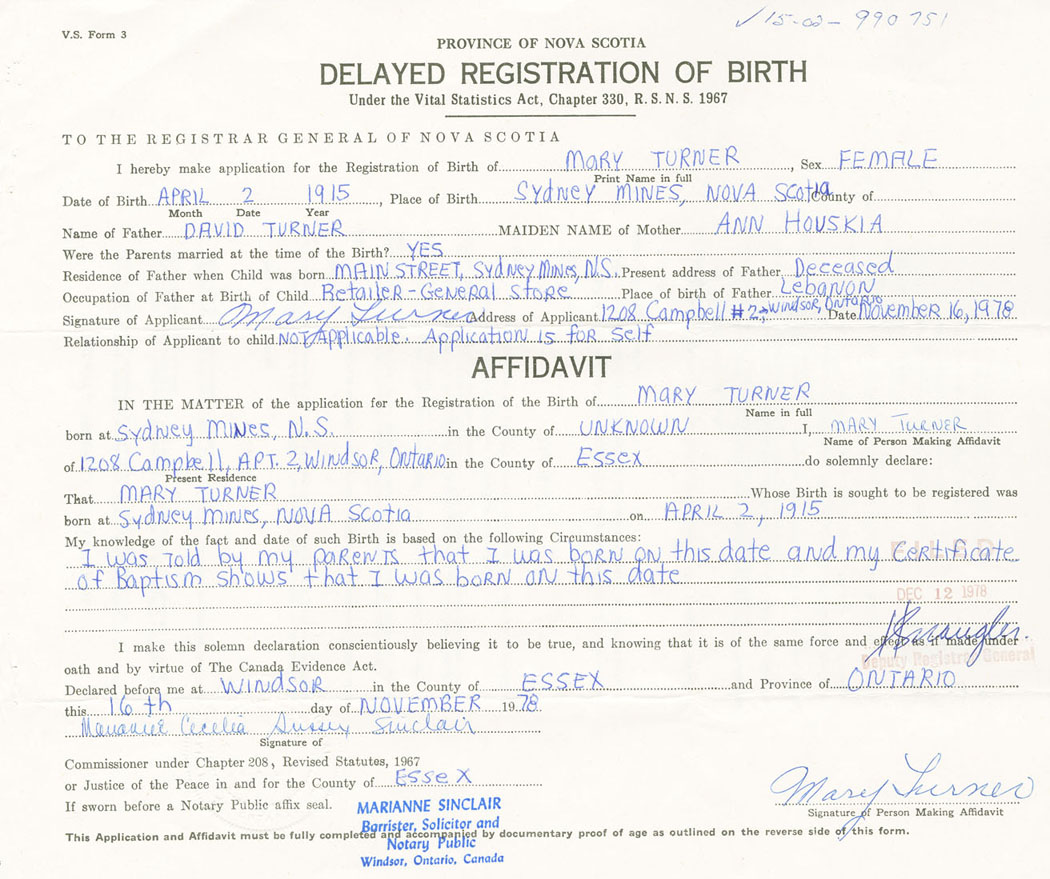 ✓ 15-02-990751
V.S. Form 3
PROVINCE OF NOVA SCOTIA
DELAYED REGISTRATION OF BIRTH
Under the Vital Statistics Act, Chapter 330, R.S.N.S. 1967
TO THE REGISTRAR GENERAL OF NOVA SCOTIA
I hereby make application for the Registration of Birth of MARY TURNER, Sex FEMALE
Print Name in full
Date of Birth APRIL 2 1915, Place of Birth Sydney MINES, NOVA Scotia County of
Month Date Year
Name of Father DAVID TURNER MAIDEN NAME of Mother ANN HOUSKIA
Were the Parents married at the time of the Birth? YES
Residence of Father when Child was born MAIN STREET, Sydney Mines, N.S. Present address of Father Deceased
Occupation of Father at Birth of Child Retailer-General Store Place of birth of Father LEBANON
Signature of Applicant Mary Turner Address of Applicant 1208 Campbell #2, Windsor, Ontario Date November 16, 1978
Relationship of Applicant to child NOT Applicable. Application is for Self
AFFIDAVIT
IN THE MATTER of the application for the Registration of the Birth of MARY TURNER
Name in full
born at Sydney Mines, N.S. in the County of UNKNOWN I, MARY TURNER
Name of Person Making Affidavit
of 1208 Campbell, APT. 2, Windsor, Ontario in the County of Essex do solemnly declare:
Present Residence
That MARY TURNER Whose Birth is sought to be registered was
born at Sydney Mines, NOVA Scotia on APRIL 2, 1915
My knowledge of the fact and date of such Birth is based on the following Circumstances:
I was told by my parents that I was born on this date and my Certificate
of Baptism shows that I was born on this date
FILED
DEC 12 1978
I make this solemn declaration conscientiously believing it to be true, and knowing that it is of the same force and effect as if made under
oath and by virtue of The Canada Evidence Act.
Deputy Registrar General
Declared before me at WINDSOR in the County of ESSEX and Province of ONTARIO
this 16th day of NOVEMBER 1978
Marianne Cecelia Sinclair
Signature of
Commissioner under Chapter 208, Revised Statutes, 1967
or Justice of the Peace in and for the County of Essex
Mary Turner
Signature of Person Making Affidavit
If sworn before a Notary Public affix seal.
MARIANNE SINCLAIR
Barrister, Solicitor and
Notary Public
Windsor, Ontario, Canada
This Application and Affidavit must be fully completed and accompanied by documentary proof of age as outlined on the reverse side of this form.